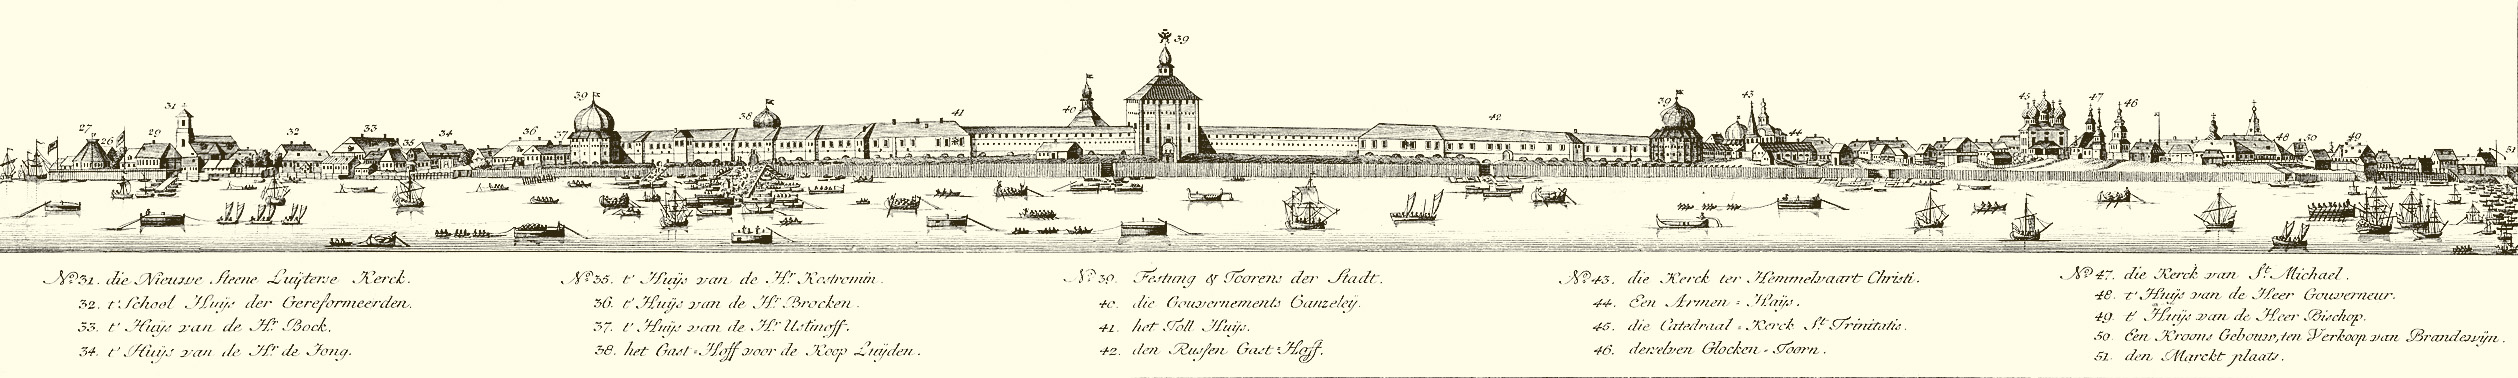 27 26 29 31 32 33 35 34 36 37 39 38 41 40 39 42 39 43 44 45 47 46 48 50 49 51
No. 31. die Nieuwe Steene Luÿterse Kerck.
32. t' School Huÿs der Gereformeerden.
33. t' Huÿs van de Hr. Bock.
34. t' Huÿs van de Hr. de Jong.
No. 35. t' Huÿs van de Hr. Kostromin.
36. t' Huÿs van de Hr. Brocken.
37. t' Huÿs van de Hr. Ustinoff.
38. het Gast=Hoff voor de Koop Luÿden.
No. 39. Festung & Toorens der Stadt.
40. die Gouvernements Canzeleÿ.
41. het Toll Huÿs.
42. den Russen Gast=Hoff.
No. 43. die Kerck ter Hemmelvaart Christi.
44. Een Armen=Haÿs.
45. die Catedraal=Kerck St. Trinitatis.
46. deselven Glocken=Toorn.
No. 47. die Kerck van St. Michael.
48. t' Huÿs van de Heer Gouverneur.
49. t' Huÿs van de Heer Bischop.
50. Een Kroons Gebouw, ten Verkoop van Brandewÿn.
51. den Marckt plaats.